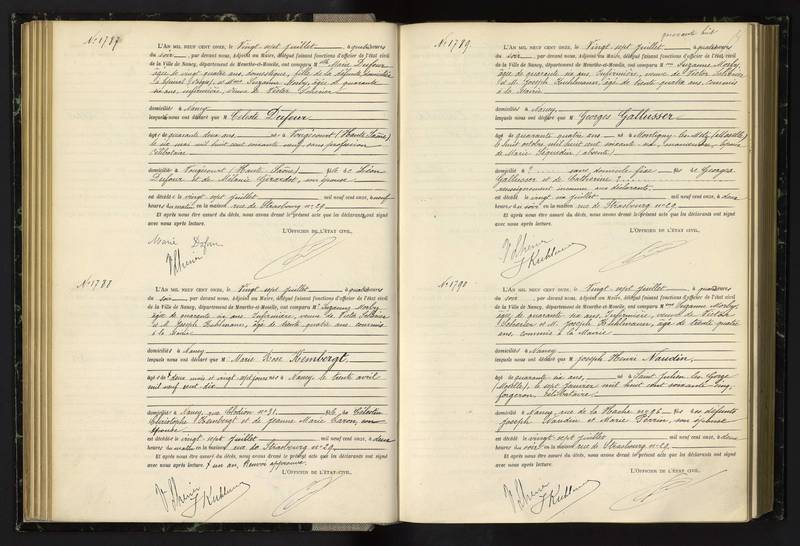 N° 1787
L'AN MIL NEUF CENT ONZE, le Vingt sept juillet à quatre heures
du soir, par devant nous, Adjoint au Maire, délégué faisant fonctions d'officier de l'état civil
de la Ville de Nancy, département de Meurthe-et-Moselle, ont comparu M Marie Dufour
âgée de vingt quatre ans, domestique, fille de la défunte
et Suzanne Morby, âgée de quarante
six ans, infirmière, veuve de Victor
domiciliés à Nancy
lesquels nous ont déclaré que M Celeste Dufour
âgé de quarante deux ans né à Vougécourt (Haute Saône)
le six mai mil huit cent soixante neuf, sans profession
célibataire
domicilié à Vougécourt (Haute-Saône) fils de Léon
Dufour et de Mélanie Girardot, son épouse
est décédé le vingt sept juillet mil neuf cent onze, à neuf
heures du matin en la maison rue de Strasbourg n° 29
Et après nous être assuré du décès, nous avons dressé le présent acte que les déclarants ont signé
avec nous après lecture.
L'OFFICIER DE L'ÉTAT CIVIL,
Marie Dufour
N° 1788
L'AN MIL NEUF CENT ONZE, le Vingt sept juillet à quatre heures
du soir, par devant nous, Adjoint au Maire, délégué faisant fonctions d'officier de l'état civil
de la Ville de Nancy, département de Meurthe-et-Moselle, ont comparu M Suzanne Morby
âgée de quarante six ans, Infirmière, veuve de Victor
et M. Joseph Kuhlmann, âgé de trente quatre ans, commis
à la Mairie
domiciliés à Nancy
lesquels nous ont déclaré que M Marie Rose Kembergt
âgé de deux mois et vingt sept jours né à Nancy, le trente avril
mil neuf cent dix
domicilié à Nancy, rue Clodion n° 31 fils de Célestin
Christophe Kembergt et de Jeanne Marie Caron, son
épouse
est décédé le vingt sept juillet mil neuf cent onze, à deux
heures du matin en la maison rue de Strasbourg n° 29
Et après nous être assuré du décès, nous avons dressé le présent acte que les déclarants ont signé
avec nous après lecture. + un an, Renvoi approuvé.
L'OFFICIER DE L'ÉTAT CIVIL,
J Kuhlmann
quarante huit
N° 1789
L'AN MIL NEUF CENT ONZE, le Vingt sept juillet à quatre heures
du soir, par devant nous, Adjoint au Maire, délégué faisant fonctions d'officier de l'état civil
de la Ville de Nancy, département de Meurthe-et-Moselle, ont comparu M Suzanne Morby
âgée de quarante six ans, Infirmière, veuve de Victor
et M. Joseph Kuhlmann, âgé de trente quatre ans, commis
à la Mairie
domiciliés à Nancy
lesquels nous ont déclaré que M Georges Gallusser
âgé de quarante quatre ans né à Montigny-les-Metz (Moselle)
le huit octobre mil huit cent soixante six, manœuvre, époux
de Marie (absente)
domicilié à ? sans domicile fixe fils de Georges
Gallusser et de Catherine ?
renseignement inconnu aux déclarants
est décédé le vingt six juillet mil neuf cent onze, à deux
heures du soir en la maison rue de Strasbourg n° 29
Et après nous être assuré du décès, nous avons dressé le présent acte que les déclarants ont signé
avec nous après lecture.
L'OFFICIER DE L'ÉTAT CIVIL,
J Kuhlmann
N° 1790
L'AN MIL NEUF CENT ONZE, le Vingt sept juillet à quatre heures
du soir, par devant nous, Adjoint au Maire, délégué faisant fonctions d'officier de l'état civil
de la Ville de Nancy, département de Meurthe-et-Moselle, ont comparu M Suzanne Morby
âgée de quarante six ans, Infirmière, veuve de Victor
et M. Joseph Kuhlmann, âgé de trente quatre
ans, commis à la Mairie
domiciliés à Nancy
lesquels nous ont déclaré que M Joseph Henri Naudin
âgé de quarante six ans, né à Saint Julien les Gorze
(Moselle), le sept Janvier mil huit cent soixante cinq,
forgeron, célibataire
domicilié à Nancy, rue de la Hache n° 96 fils des défunts
Joseph Naudin et Marie Perrin, son épouse
est décédé le vingt sept juillet mil neuf cent onze, à deux
heures du soir en la maison rue de Strasbourg n° 29
Et après nous être assuré du décès, nous avons dressé le présent acte que les déclarants ont signé
avec nous après lecture.
L'OFFICIER DE L'ÉTAT CIVIL,
J Kuhlmann